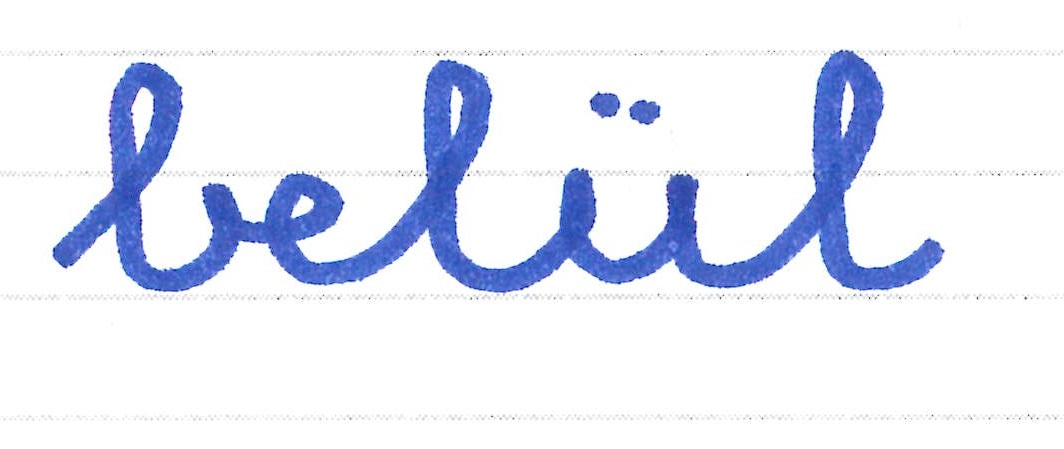 belül